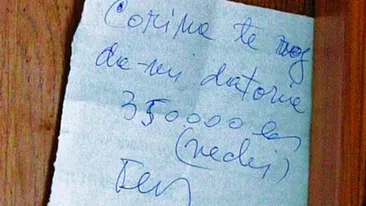 Corina te rog
da-mi datoria
350000 lei